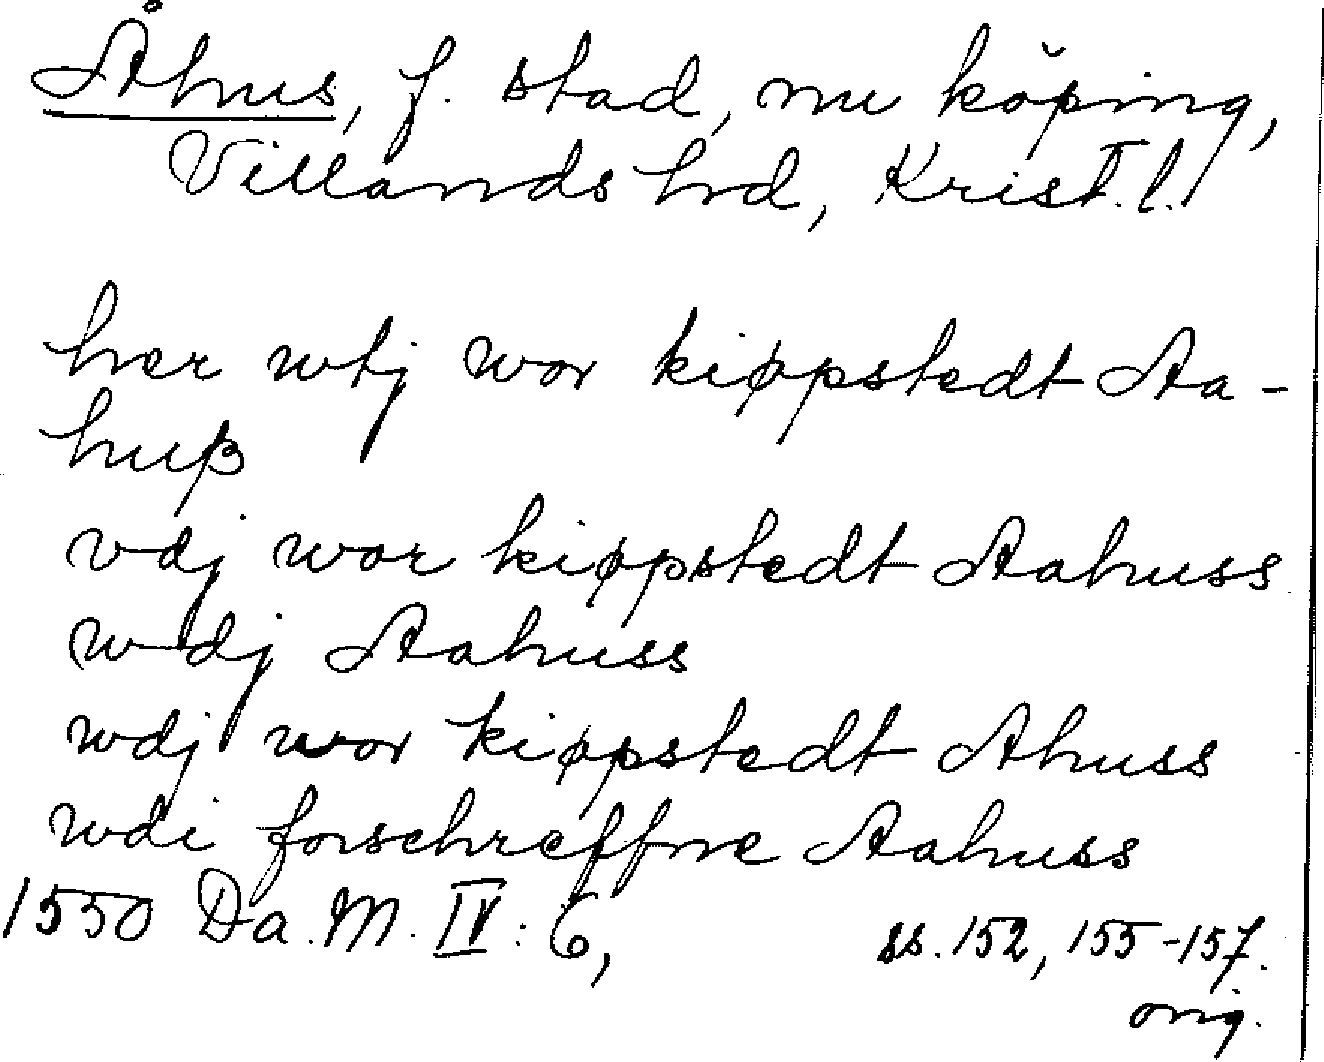 Åhus, f. stad, nu köping,
Villands hrd, Krist. l.
her wtj wor kiøpstedt Aa-
huß
vdj wor kiøpstedt Aahuss
wdj Aahuss
wdj wor kiøpstedt Ahuss
wdi forschreffne Aahuss
1550 Da. M. IV: 6, ss. 152, 155-157.
orig.